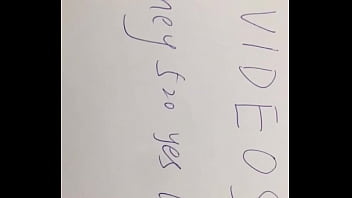 VIDEOS
ney £20 yes